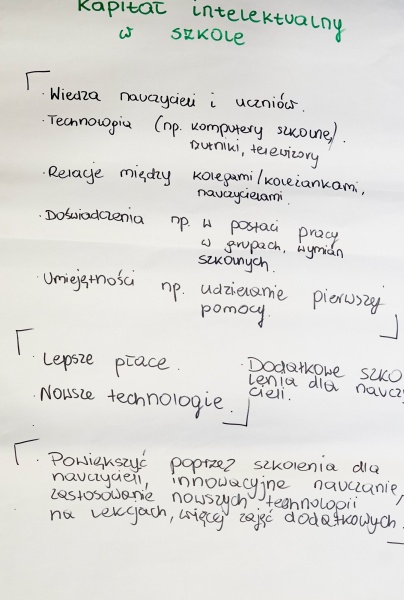 Kapitał intelektualny
w SZKOLE
· Wiedza nauczycieli i uczniów.
· Technologia (np. komputery szkolne).
rzutniki, telewizory
· Relacje między kolegami/koleżankami,
nauczycielami.
· Doświadczenia np. w postaci pracy
w grupach, wymian
szkolnych.
· Umiejętności np. udzielanie pierwszej
pomocy.
· Lepsze płace.
· Nowsze technologie.
· Dodatkowe szko
lenia dla naucz
cieli.
· Powiększyć poprzez szkolenia dla
nauczycieli, innowacyjne nauczanie,
zastosowanie nowszych technologii
na lekcjach, więcej zajęć dodatkowych.